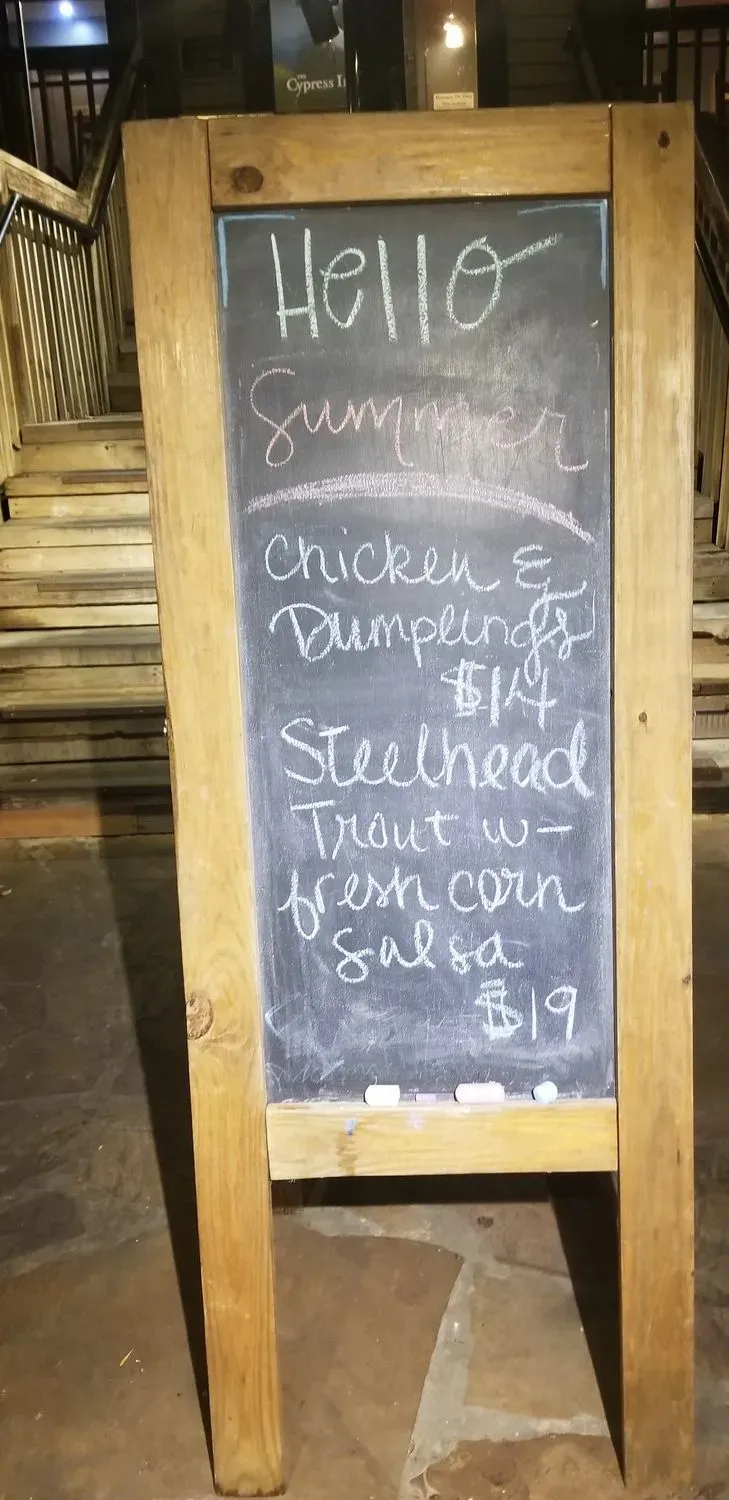 THE
Cypress
Hello
Summer
Chicken &
Dumplings
$14
Steelhead
Trout w-
fresh corn
salsa
$19